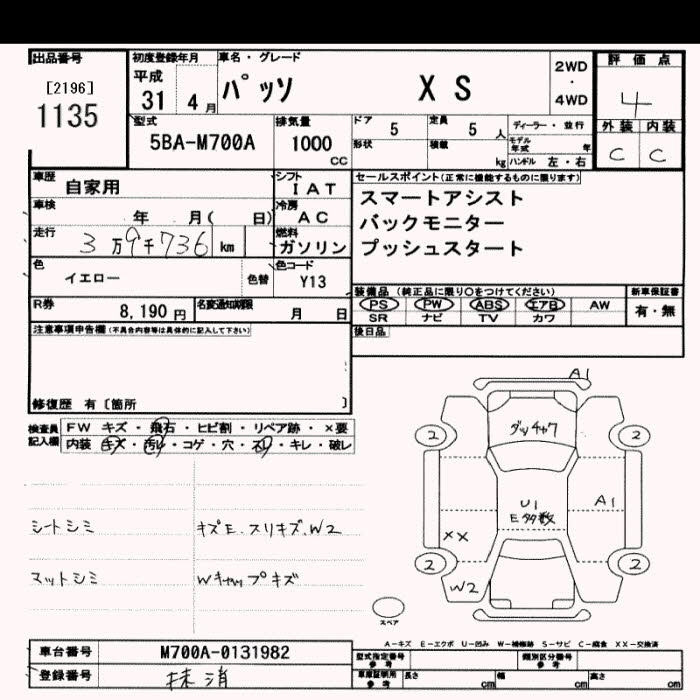 出品番号
[2196]
1135
初度登録年月
平成
31 4月
車名・グレード
パッソ XS
2WD
・
4WD
評価点
4
外装 内装
C C
型式
5BA-M700A
排気量
1000
CC
ドア 5
定員 5人
形状
積載 kg
ディーラー・並行
モデル年式 年
ハンドル 左・右
車歴 自家用
シフト IAT
車検 年 月( 日)
冷房 AC
走行 3万9千736km
燃料 ガソリン
色 イエロー
色替
色コード Y13
R券 8,190円
名変通知期限 月 日
セールスポイント(正常に機能するものに限ります)
スマートアシスト
バックモニター
プッシュスタート
装備品(純正品に限り○をつけてください)
PS PW ABS エアB AW
SR ナビ TV カワ
新車保証書
有・無
後日品
注意事項申告欄(不具合内容等は具体的に記入して下さい)
修復歴 有〔箇所 〕
検査員記入欄
FW キズ・飛石・ヒビ割・リペア跡・×要
内装 キズ・汚レ・コゲ・穴・スレ・キレ・破レ
シートシミ
キズE.スリキズ.W2
マットシミ
A1
2 2
U1
E多数
A1
XX
2 2
W2
スペア
A-キズ E-エクボ U-凹み W-補修跡 S-サビ C-腐食 XX-交換済
車台番号 M700A-0131982
登録番号 抹消
型式指定番号
参考
類別区分番号
参考
車庫証明用
参考
長さ cm
幅 cm
高さ cm